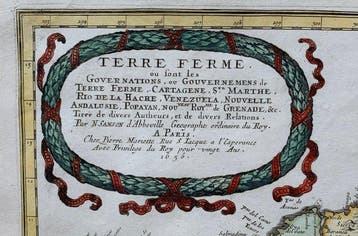 TERRE FERME.
ou sont les
GOVERNATIONS, ou GOUVERNEMENS de
TERRE FERME, CARTAGENE, Ste MARTHE,
RIO DE LA HACHE, VENEZUELA, NOUVELLE
ANDALUSIE, POPAYAN, NOUveau ROYme de GRENADE, &c.
Tirée de divers Autheurs, et de diverses Relations.
Par N. SANSON d'Abbeville Geographe ordinaire du Roy.
A PARIS.
Chez Pierre Mariette Rue S. Iacque a l'Esperance
Avec Privilege du Roy pour vingt Ans.
1656.